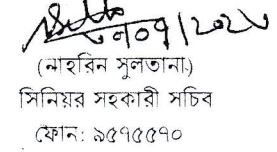 (নাহরিন সুলতানা)
সিনিয়র সহকারী সচিব
ফোন: ৯৫৭৫৫৭০